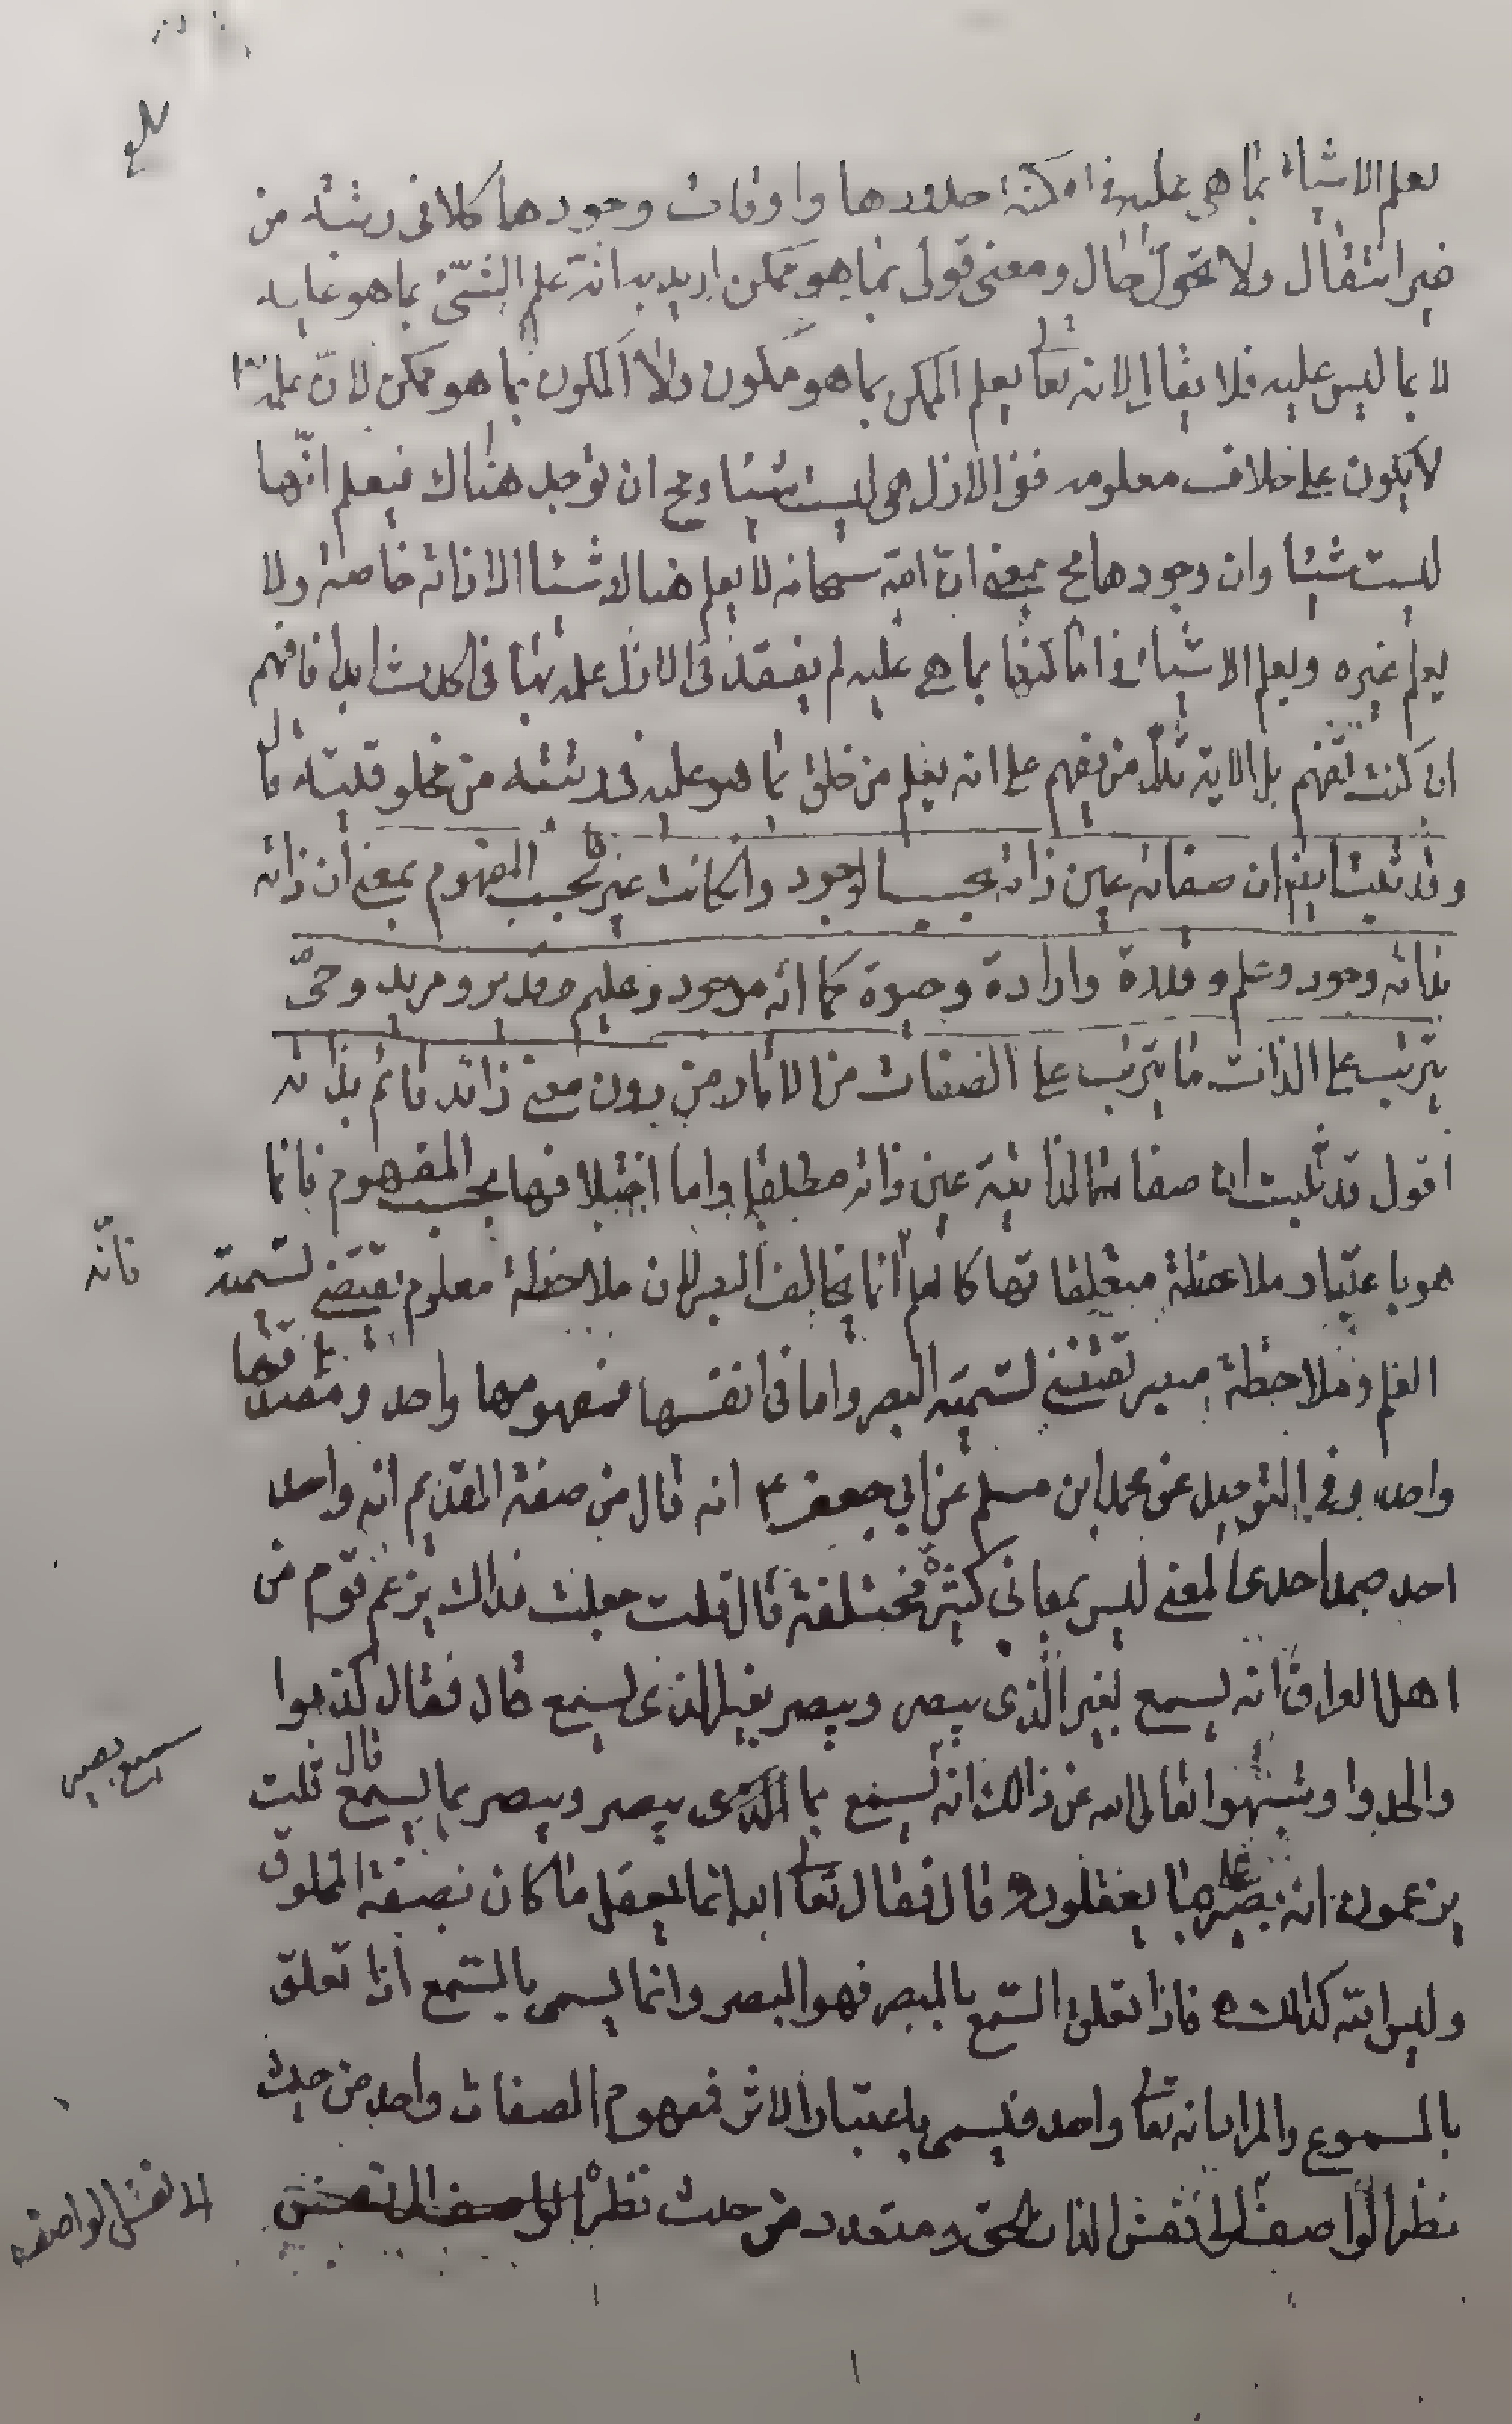 بلغ
يعلم الاشياء بما هي عليه في امكنة حدودها واوقات وجودها كلا في رتبته من
غير انتقال ولا تحول حال ومعنى قولى بما هو ممكن اريد به انه علم الشئ بما هو عليه
لا بما ليس عليه فلا يقال انه تعالى يعلم الممكن بما هو مكون ولا المكون بما هو ممكن لان علمه
لا يكون على خلاف معلومه ففى الازل هى ليست شيئا ومح ان توجد هناك فيعلم انها
ليست شيئا وان وجودها مح بمعنى ان الله سبحانه لا يعلم هنالك شيئا الا ذاته خاصة ولا
يعلم غيره ويعلم الاشياء في اماكنها بما هي عليه لم يفقد في الازل علمه بها في الحدث ابدا فافهم
ان كنت تفهم بل الاية تدل من يفهم على انه يعلم من خلق بما هو عليه في رتبته من مخلوقيته قال
وقد ثبت ايضا ان صفاته عين ذاته بحسب الوجود وان كانت غيرها بحسب المفهوم بمعنى ان ذاته
بذاته وجود وعلم وقدرة وارادة وحيوة كما انه موجود وعليم وقدير ومريد وحىّ
يترتب على الذات ما يترتب على الصفات من الاثار من دون معنى زائد قائم بذاته
اقول قد ثبت ان صفاته الذاتية عين ذاته مطلقا واما اختلافها بحسب المفهوم فانما
هو باعتبار ملاحظة متعلقاتها كالعلم انما يخالف البصر لان ملاحظة معلوم تقتضى تسمية
فانّه
العلم وملاحظة مبصر تقتضى تسمية البصر واما في انفسها فمفهومها واحد ومصداقها
واحد وفي التوحيد عن محمد ابن مسلم عن ابي جعفر ع انه قال من صفة القديم انه واحد
احد صمد احدى المعنى ليس بمعانى كثيرة مختلفة قال قلت جعلت فداك يزعم قوم من
اهل العراق انه يسمع بغير الذى يبصر ويبصر بغير الذى يسمع قال فقال كذبوا
والحدوا وشبهوا تعالى الله عن ذالك انه يسمع بما يبصر ويبصر بما يسمع قال قلت
سميع بصير
يزعمون انه بصير على ما يعقلون قال فقال تعالى الله انما يعقل ما كان بصفة المخلوق
وليس الله كذالك فاذا تعلق السمع بالمبصر فهو البصر وانما يسمى بالسمع اذا تعلق
بالمسموع والمراد انه تعالى واحد فيسمى باعتبار الاثر فمفهوم الصفات واحد من حيث
نظر الواصف الى نفس الذات الحق ومتعدد من حيث نظر
الى نفس الواصف